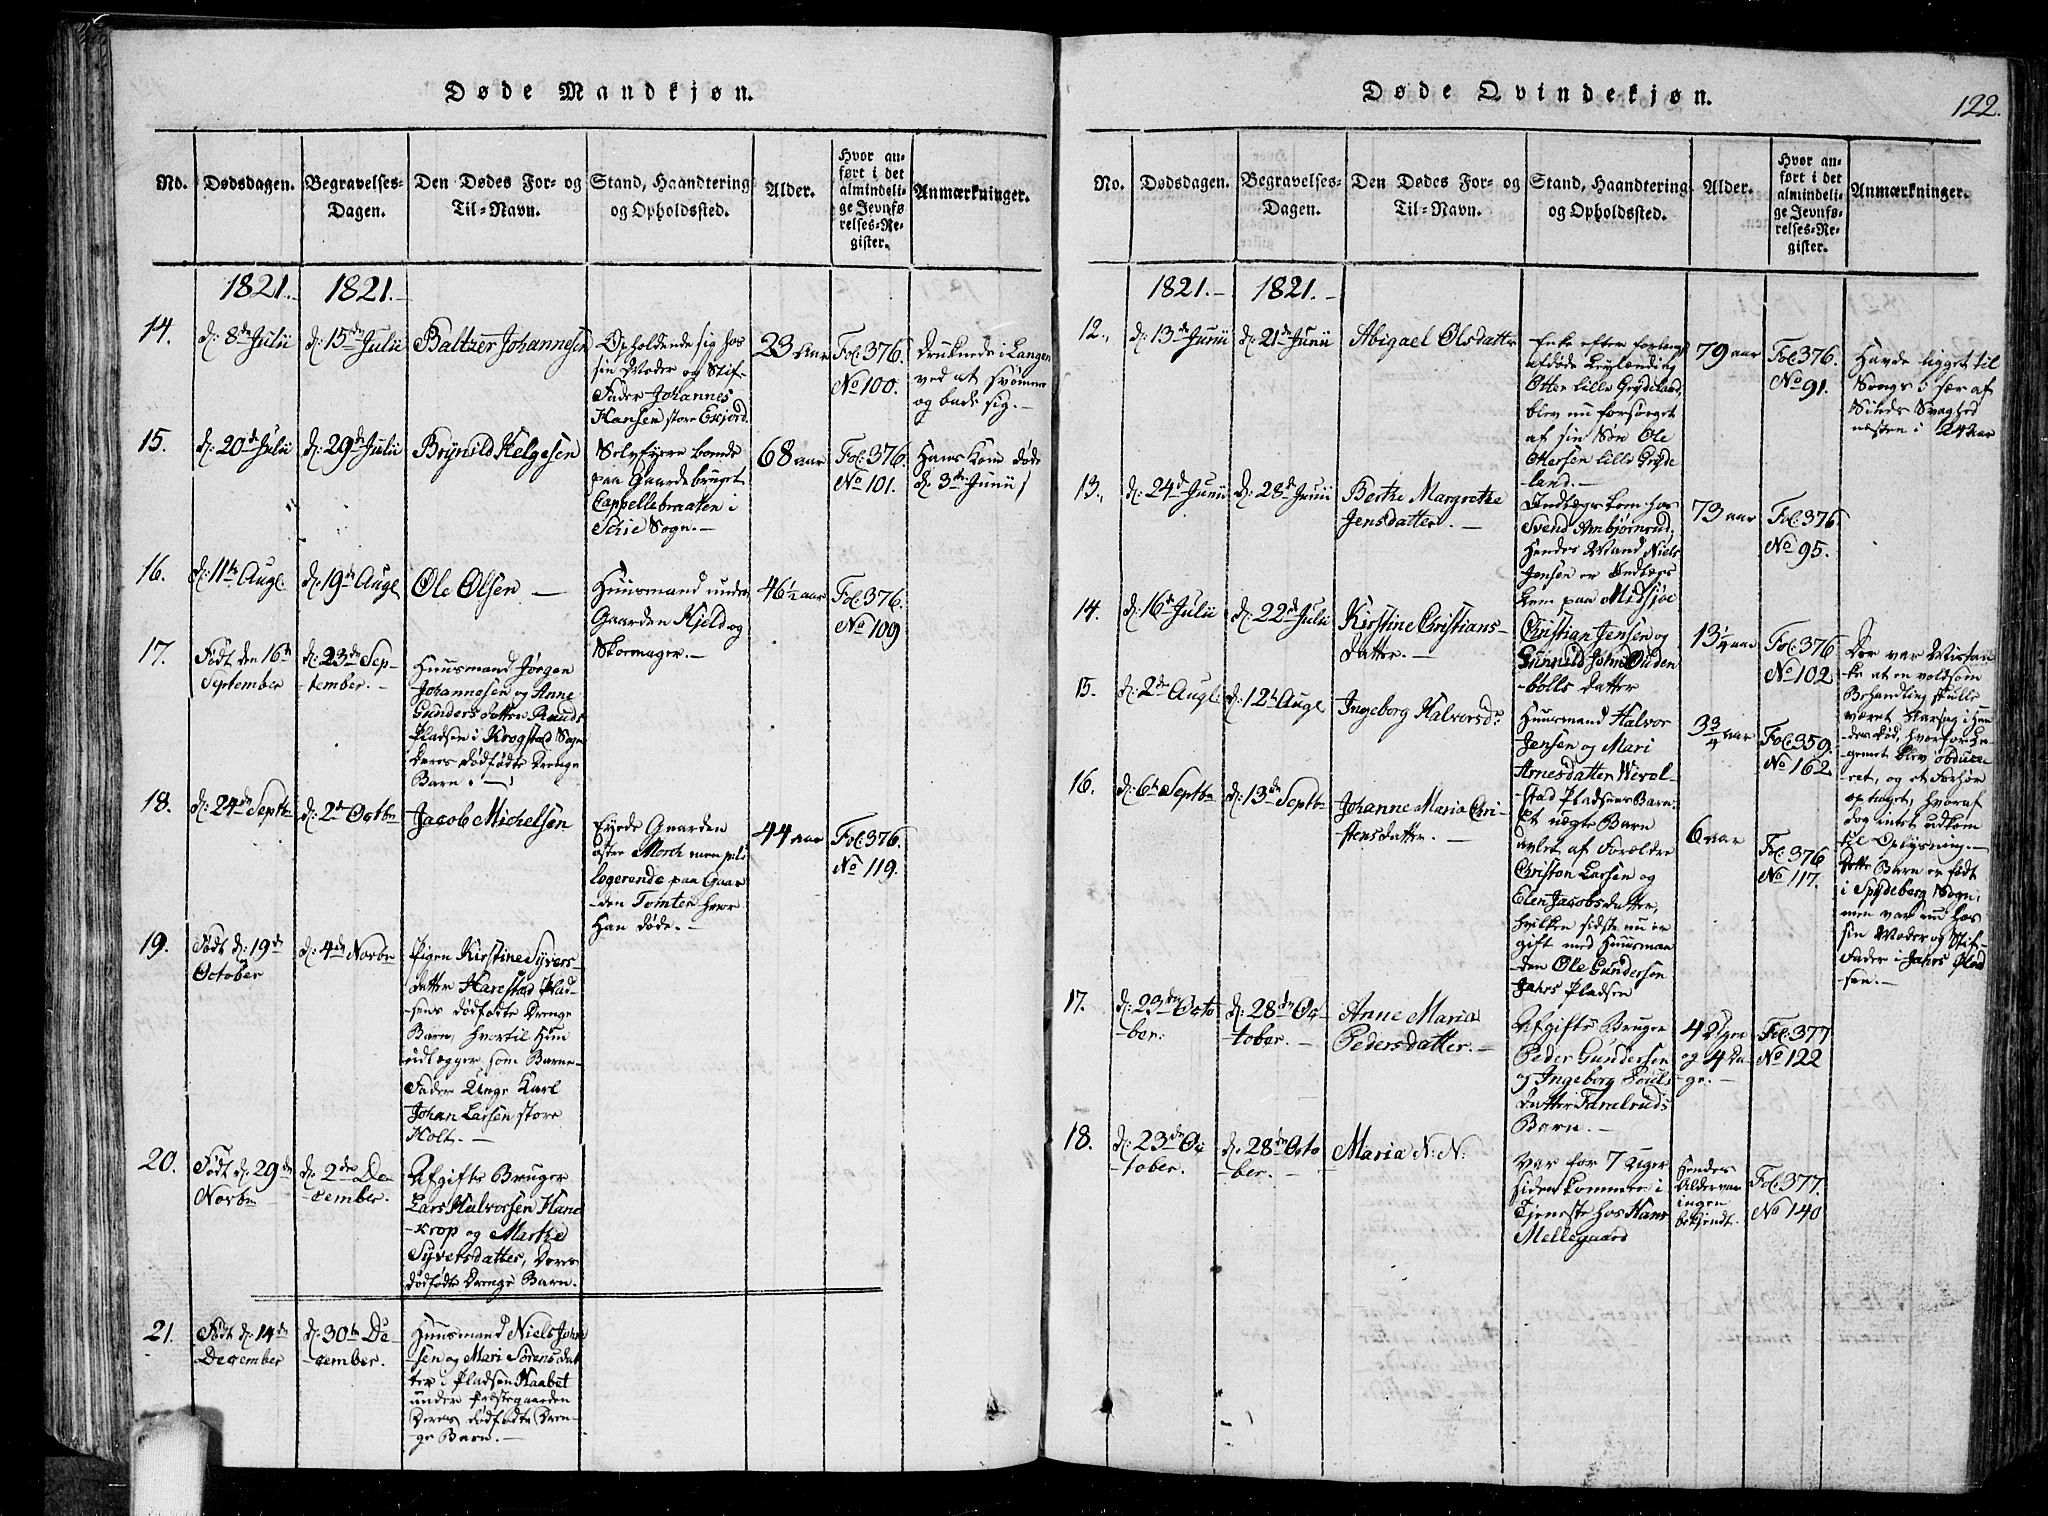 Døde Mandkjøn.
No.
Dødsdagen.
Begravelses-
Dagen.
Den Dødes For- og
Til-Navn.
Stand, Haandtering
og Opholdssted.
Alder.
Hvor an-
ført i det
almindeli-
ge Jevnfø
relses-Re-
gister.
Anmærkninger.
1821.- 1821.-
14.
d: 8de Julii
d: 15de Julii
Baltzer Johannesen
Opholdende sig hos
sin Moder og Stif-
Fader Johannes
Hansen store Evjord
23 aar
Fol: 376.
No 100.
Druknede i Langen
ved at svømme
og bade sig.-
15.
d: 20de Julii
d: 29de Julii
Brynild Helgesen
Selvejere boende
paa Gaardebruget
Cappellebraaten i
Schie Sogn.-
68 aar
Fol: 376.
No 101.
Hans Kone døde
d: 3de Junii
16.
d: 11te Augl.
d: 19de Augl
Ole Olsen.-
Huusmand under
Gaarden Kjeld og
Skomager.-
46½ aar
Fol: 376.
No 109
17.
Født den 16de
September
d: 23de Sep-
tember.-
Huusmand Jørgen
Johannesen og Anne
Gundersdatter Rauds
Pladsen i Krogstad Sogn
deres dødfødte Drenge
Barn.-
18.
d: 24de Septb
d: 2de Octbr
Jacob Michelsen
Eyede Gaarden
østre Morch men
logerende paa Gaar
-den Tomter hvor
Han døde.-
44 aar
Fol: 376.
No 119.
19.
Født d: 19de
October
d: 4de Novbr
Pigen Kirstine Syvers-
datter Harestad Plad-
sens dødfødte Drenge
Barn, hvortil Hun
udlægger som Barne-
Fader Unge Karl
Johan Larsen store
Holt.-
20.
Født d: 29de
Novbr
d: 2den De
-cember.
Afgifts Bruger
Lars Halvorsen Hane
-krop og Marthe
Syversdatter, Deres
dødfødte Drenge Barn.
21.
Født d: 14de
December
d: 30te De-
-cember.
Huusmand Niels Johne
-sen og Mari Sørensdat
ter i Pladsen Haabet
under Præstegaarden
Deres dødfødte Dren-
ge Barn.-
Døde Qvindekjøn.
122.
No.
Dødsdagen.
Begravelses-
Dagen.
Den Dødes For- og
Til-Navn.
Stand, Haandtering
og Opholdssted.
Alder.
Hvor an-
ført i det
almindeli-
ge Jevnfø-
relses-Re-
gister.
Anmærkninger.
1821.- 1821.-
12.,
d: 13de Junii
d: 21de Junii
Abigael Olsdatter
Enke efter forlængst
afdøde Leylænding
Otter lille Grydeland,
blev nu forsørget
af sin Søn Ole
Ottersen lille Gryde
land.-
79 aar
Fol: 376.
No 91.
Havde ligget til
Sengs i sær af
Sinds Svaghed
næsten i 24 Aar
13.,
d: 24de Junii
d: 28de Junii
Berthe Margrethe
Jensdatter.-
Indlægs kone hos
Svend Ambjørnrud,
Hendes Mand Niels
Jensen er Indlægs
lem paa Midsjøe
73 aar
Fol: 376.
No 95.
14.
d: 16de Julii
d: 22de Julii
Kirstine Christians-
datter.-
Christian Jensen og
Gunnild Johne Ouden
-bølls datter
13¼ aar
Fol: 376
No 102
Der var Mistan
ke at en voldsom
Behandling skulle
været Aarsag i Hen
des død, hvorfor Le-
gemet blev obduce-
ret, og et Forhør
optaget, hvoraf
dog intet udkom
til Oplysning.-
15.
d: 2de Augl:
d: 12te Augl
Ingeborg Halvorsdr
Huusmand Halvor
Jensen og Mari
Arnesdatter
-stad Pladsens Barn.
3¾ aar
Fol: 359.
No 162
16.
d: 6te Septbr
d: 13de Septbr
Johanne Maria Chri-
stensdatter.-
Et uægte Barn
avlet af Forældre
Christen Larsen og
Elen Jacobsdatter,
hvilken sidste nu er
gift med Huusman
den Ole Gundersen
Jahrs Pladsen
6 aar
Fol: 376
No 117.
Dette Barn er født
i Spydeberg Sogn,
men var nu hos
sin Moder og Stif-
Fader i Jahrs Plad
sen.-
17.
d: 23de Octo
-ber.
d: 28de Oc-
tober.-
Anne Maria
Pedersdatter.-
Afgifts Bruger
Peder Gundersen
og Ingeborg Pouls
datter Taralruds
Barn.-
4 Uger
og 4 Da-
ge.-
Fol: 377
No 122
18.
d: 23de Oc
-tober.
d: 28de Octo
-ber.-
Maria N: N:
Var for 7 Uger
siden kommen i
Tjeneste hos Hans
Mellegaard
Hendes
Alder var
ingen
bekjendt.
Fol: 377.
No 140